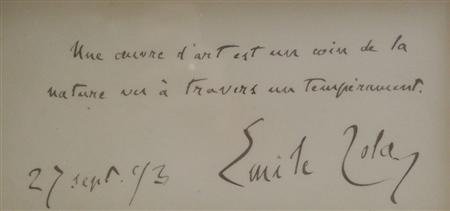 Une œuvre d'art est un coin de la
nature vu à travers un tempérament.
27 sept. 93
Emile Zola